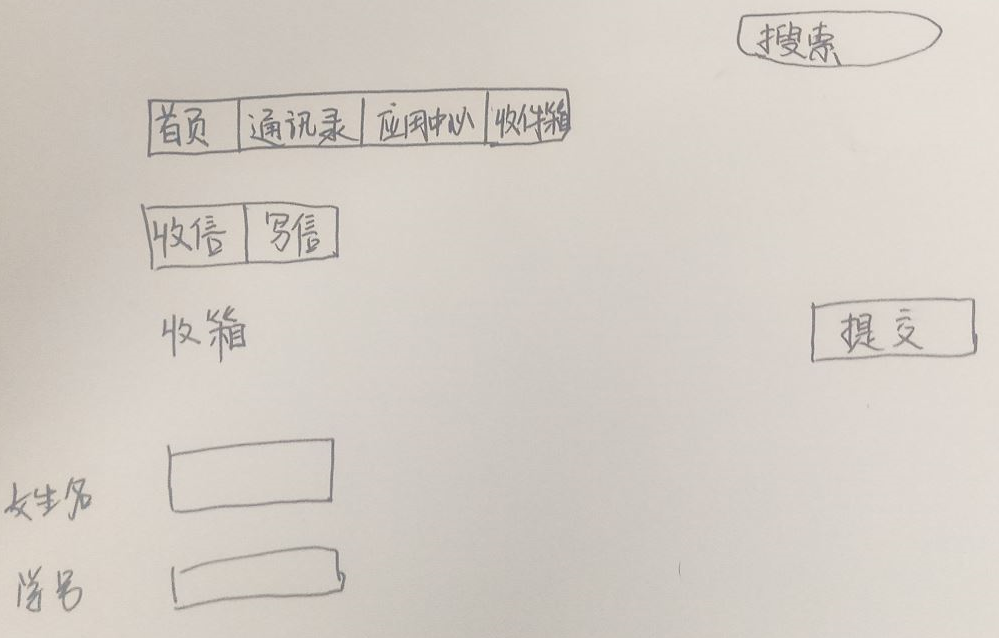 搜索
首页 通讯录 应用中心 收件箱
收信 写信
收箱 提交
女生名
学号